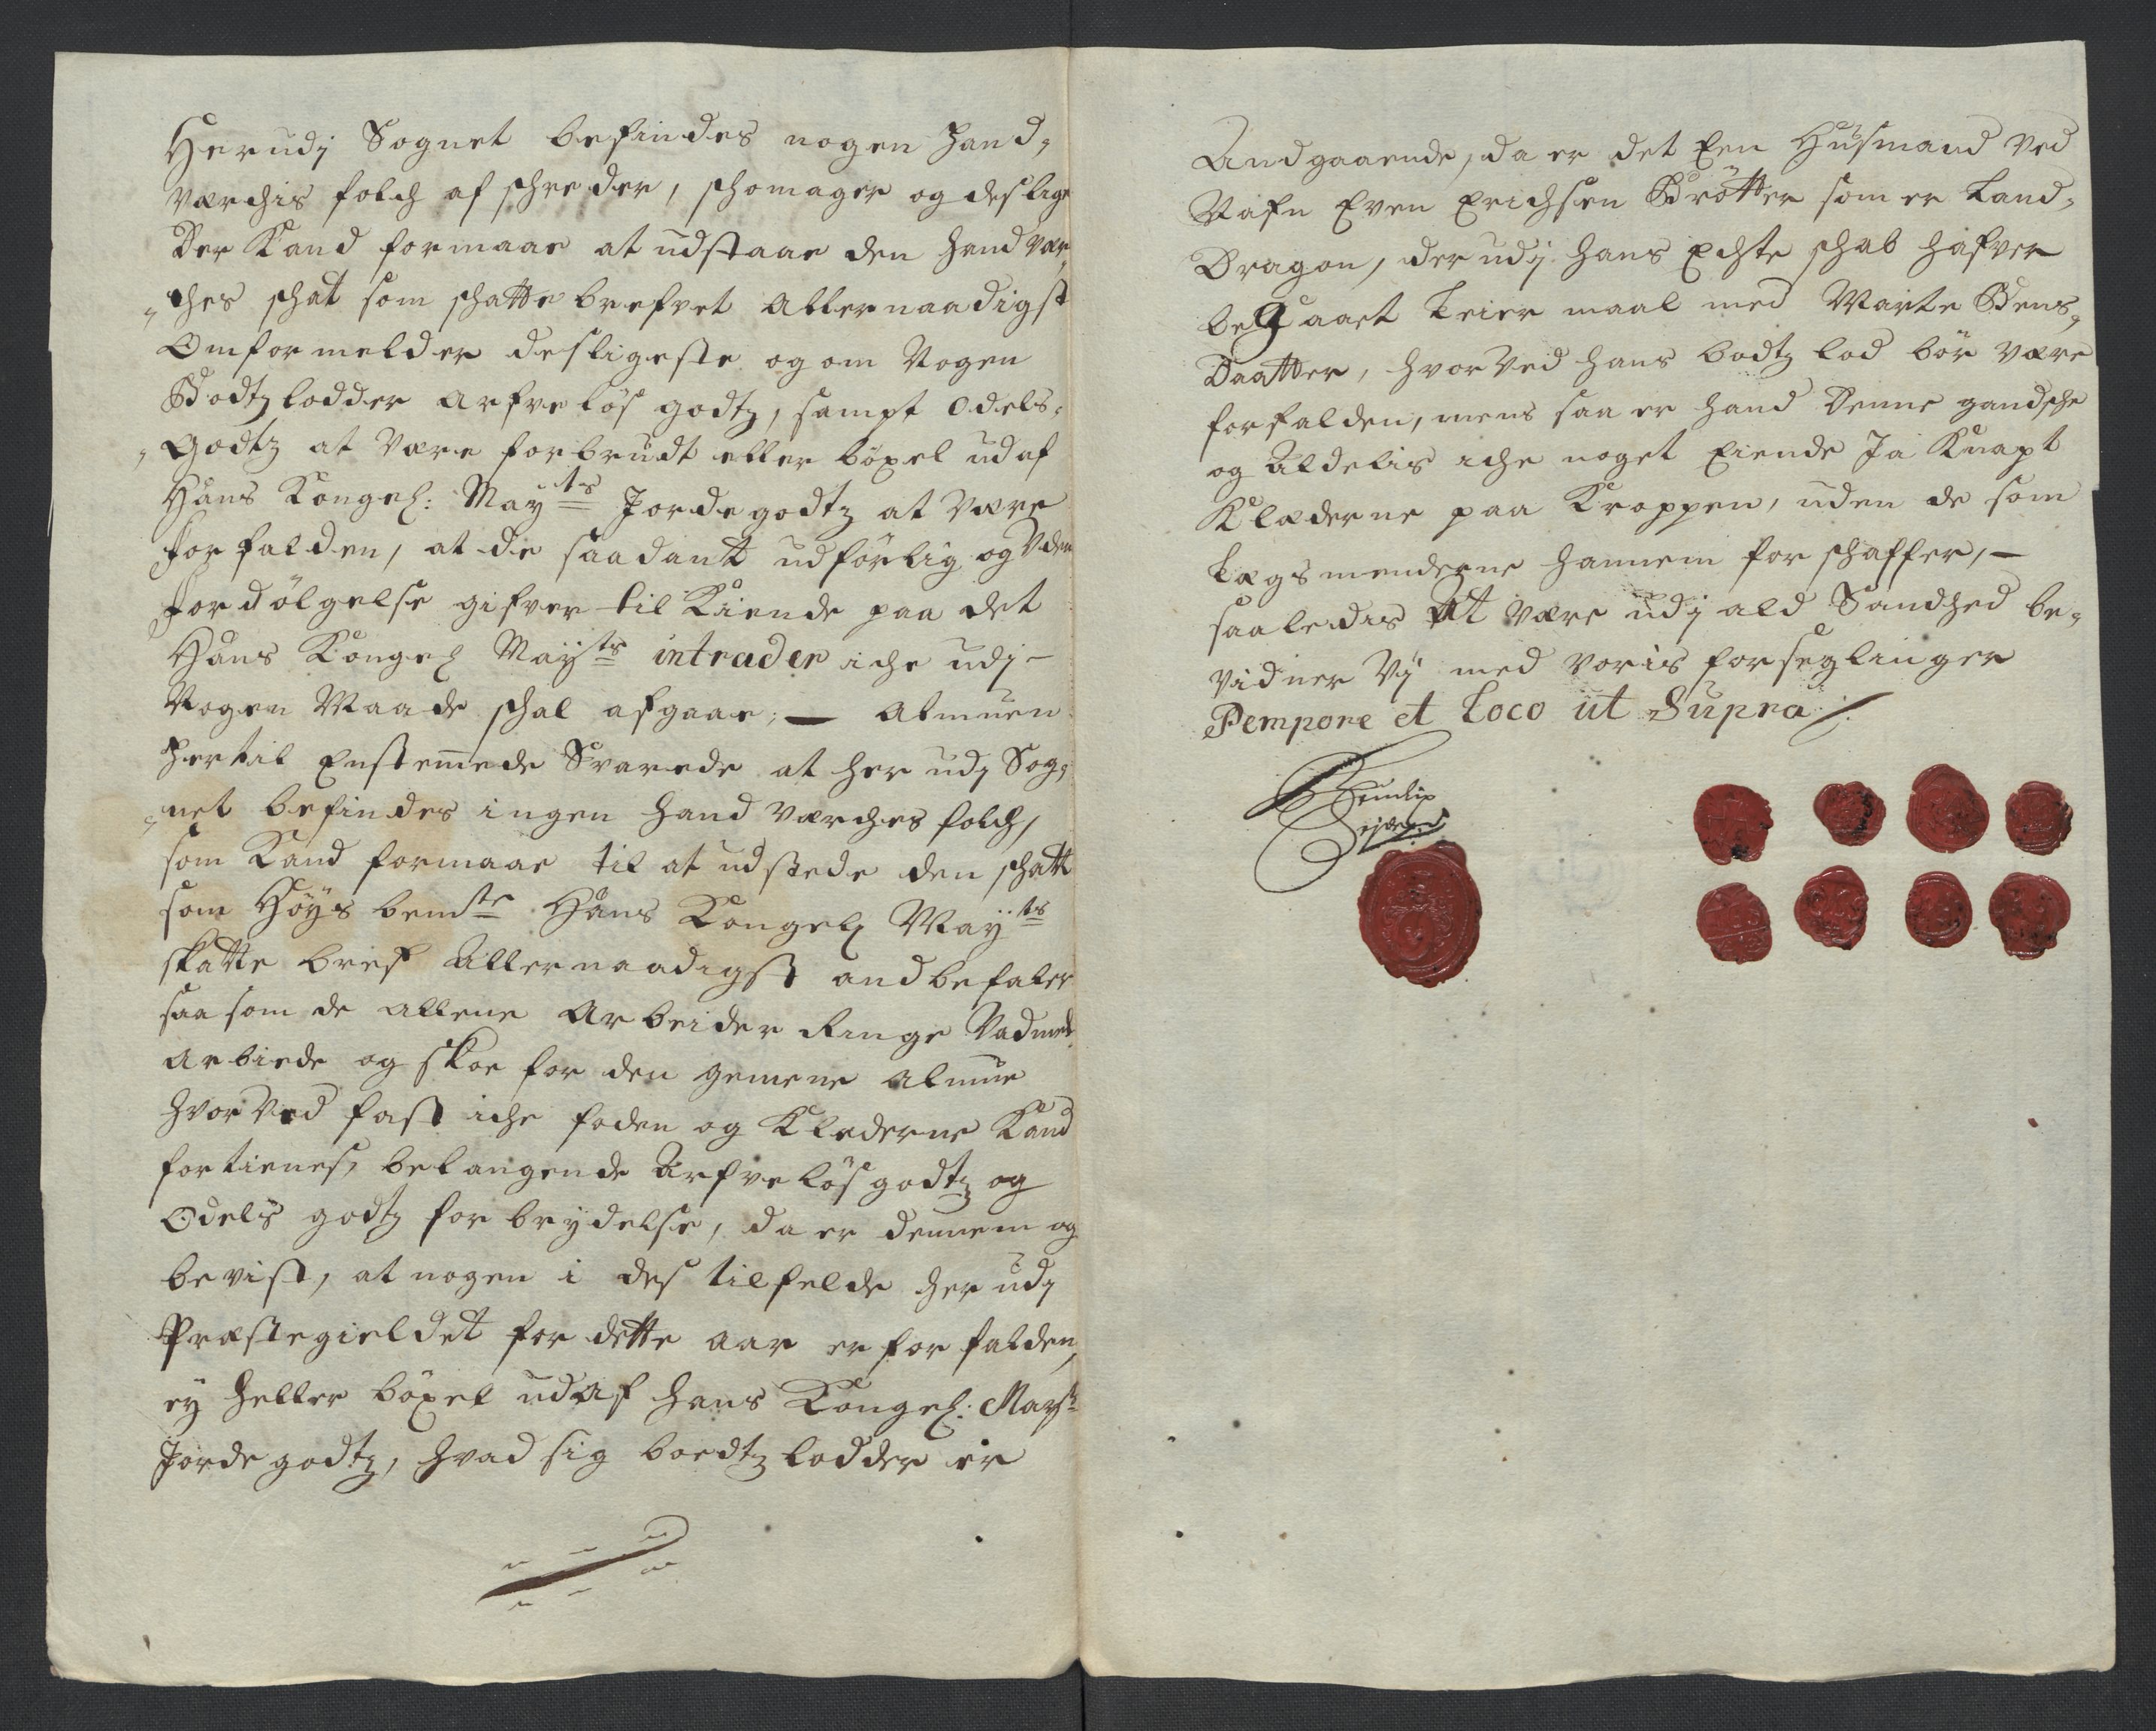 Herudj Sognet befindes nogen Hand,
Værchis folch af schreder, schomager og deslige
Der Kand formaae at udstaae den Handvær,
„ches schat som schattebrefvet Allernaadigst
Omformelder desligeste og om Nogen
Bodtzlodder Arfveløs godtz, sampt odels,
„Godtz at Være forbrudt eller böxel ud af
Hans Kongel: Mayts Jordegodtz at Være
forfalden, at de saadant udförlig og Uden
fordölgelse gifver til Kiende paa det
Hans Kongel Mayts intrader iche udj
Nogen Maade schal afgaae; — Almuen
hertil Enstemede Svarede at her udj Sog,
„net befindes ingen hand Værches folch,
som Kand formaae til at udstede den schatt
som Höys bemte Hans Kongel Mayts
skatte bref Allernaadigst andbefaler
saasom de allene Arbeider Ringe Vadmels
Arbiede og skoe for den gemene Almue
hvorVed fast iche foden og Klæderne Kand
fortienes, belangende Arfveløs godtz og
Odels godtz forbrydelse, da er dennem og
bevist, at nogen i des tilfelde her udj
Præstegieldet for dette aar er forfalden,
ey heller böxel ud Af hans Kongel: Mayts
Jordegodtz, hvad sig boedtzlodder er
Andgaaende, da er det Een Husmand Ved
Nafn Even Erichsen Brötter som er Land,
Dragon, der udj hans Echte schab hafver
beGaaet Leiermaal med Marte Bens,
Daatter, hvorVed hans bodtz lod bör Være
forfalden, mens saa er hand Denne gandsche
og Aldelis iche noget Eiende Ja Knapt
Klæderne paa Kroppen, uden de som
Lægsmenderne hannem forschaffer, —
saaledis At være udj ald Sandhed be,
vidner Vj med voris forseglinger
Tempore et Loco ut Supra